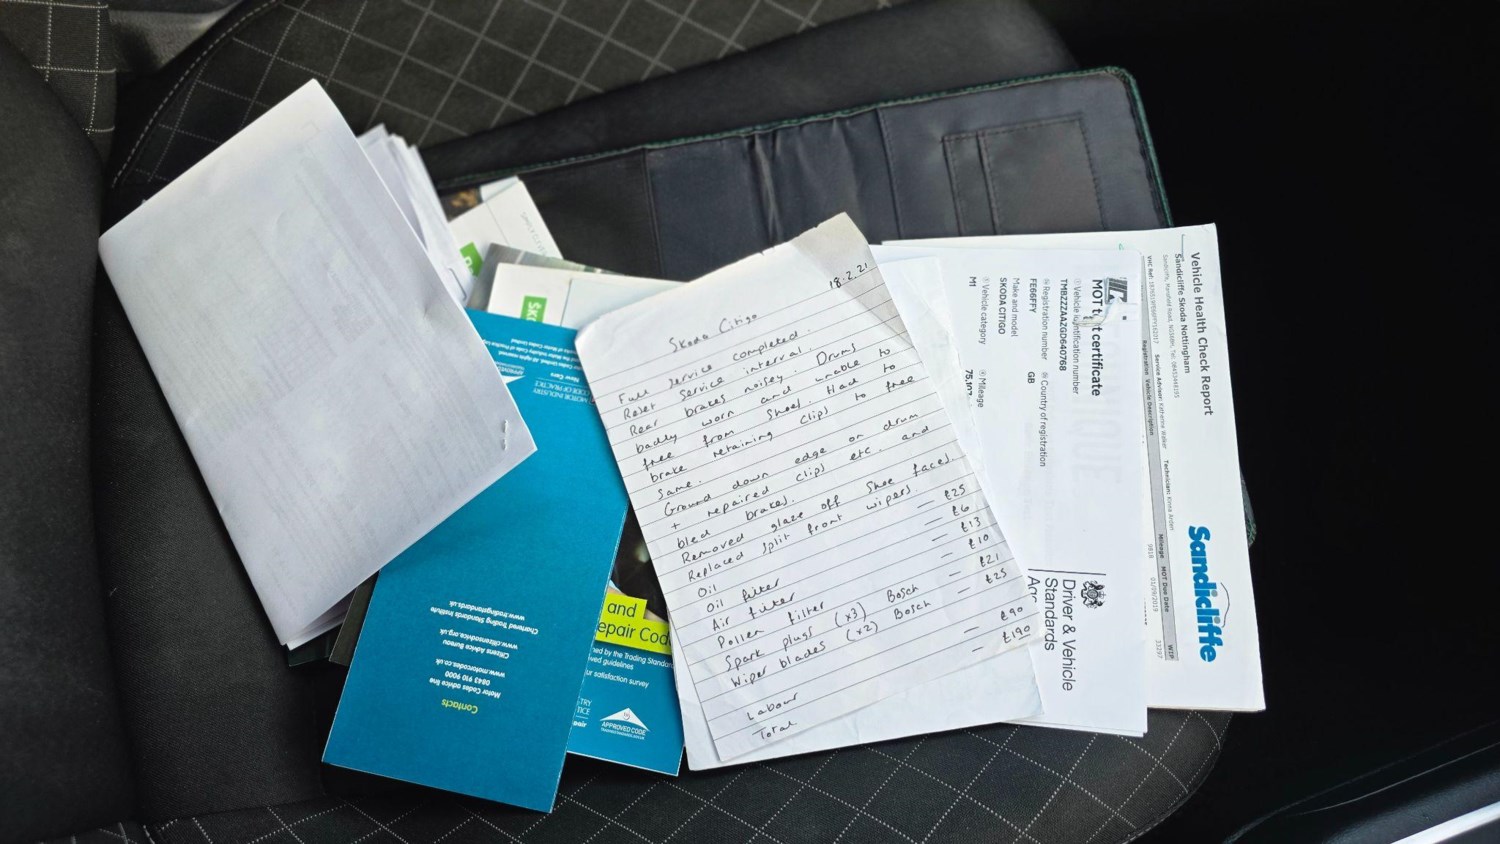 18.2.21
Skoda Citigo
Full service completed.
Reset service interval.
Rear brakes noisey. Drums
badly worn and unable to
free from shoes. Had to
brake retaining clips to free
same.
Ground down edge on drum
+ repaired clips etc. and
bled brakes.
Removed glaze off shoe faces.
Replaced split front wipers
Oil — £25
Oil filter — £6
Air filter — £13
Pollen filter — £10
Spark plugs (x3) Bosch — £21
Wiper blades (x2) Bosch — £25
Labour — £90
Total — £190
MOT test certificate
Vehicle identification number
TMBZZZAAZGD640768
Registration number
FE66FFY
Country of registration
GB
Make and model
SKODA CITIGO
Vehicle category
M1
Mileage
75,107
Driver & Vehicle
Standards
Vehicle Health Check Report
Sandicliffe Skoda Nottingham
Service Advisor: Katherine Walker
Registration Vehicle Description
Mileage MOT Due Date WIP
9818 01/09/2019 33297
Sandicliffe
Contacts
Motor Codes advice line
0843 910 9000
www.motorcodes.co.uk
Citizens Advice Bureau
www.citizensadvice.org.uk
Chartered Trading Standards Institute
www.tradingstandards.uk
MOTOR INDUSTRY
CODE OF PRACTICE
New Cars
and
epair Cod
ned by the Trading Standar
ved guidelines
ur satisfaction survey
APPROVED CODE